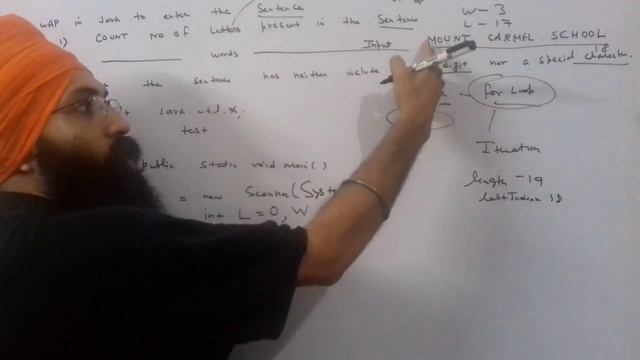 WAP in Java to enter the Sentence W-3
1) COUNT NO OF Letters present in the Sentence L-17
words Input MOUNT CARMEL SCHOOL
18
the sentence has neither include digit nor a special character.
for loop
java.util.*;
test
Iteration
public static void main()
length - 19
= new Scanner(Syste
int L=0, W